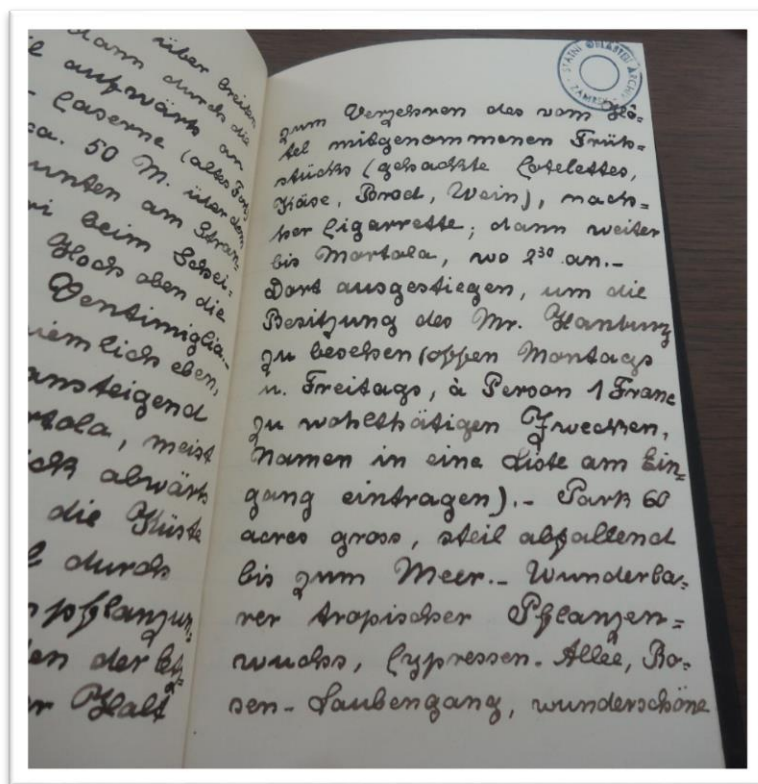 über breiten
dann durch die
aufwärts an
Caserne (altes Fort
ca. 50 M. über dem
unten am Stran-
beim Schei-
Hoch oben die
Ventimiglia.-
ziemlich eben,
ansteigend
meist
abwärts
die Küste
durch
der
Halt
STÁTNÍ OBLASTNÍ ARCHIV
ZÁMRSK
zum Verzehren des vom Hô-
tel mitgenommenen Früh-
stücks (gebackte Cotelettes,
Käse, Brod, Wein), nach-
her Cigarrette; dann weiter
bis Mortola, wo 2³⁰ an.-
Dort ausgestiegen, um die
Besitzung des Mr. Hanbury
zu besehen (offen Montags
u. Freitags, à Person 1 Franc
zu wohlthätigen Zwecken,
Namen in eine Liste am Ein-
gang eintragen).- Park 60
acres gross, steil abfallend
bis zum Meer.- Wunderba-
rer tropischer Pflanzen-
wuchs, Cypressen-Allee, Ro-
sen-Laubengang, wunderschöne